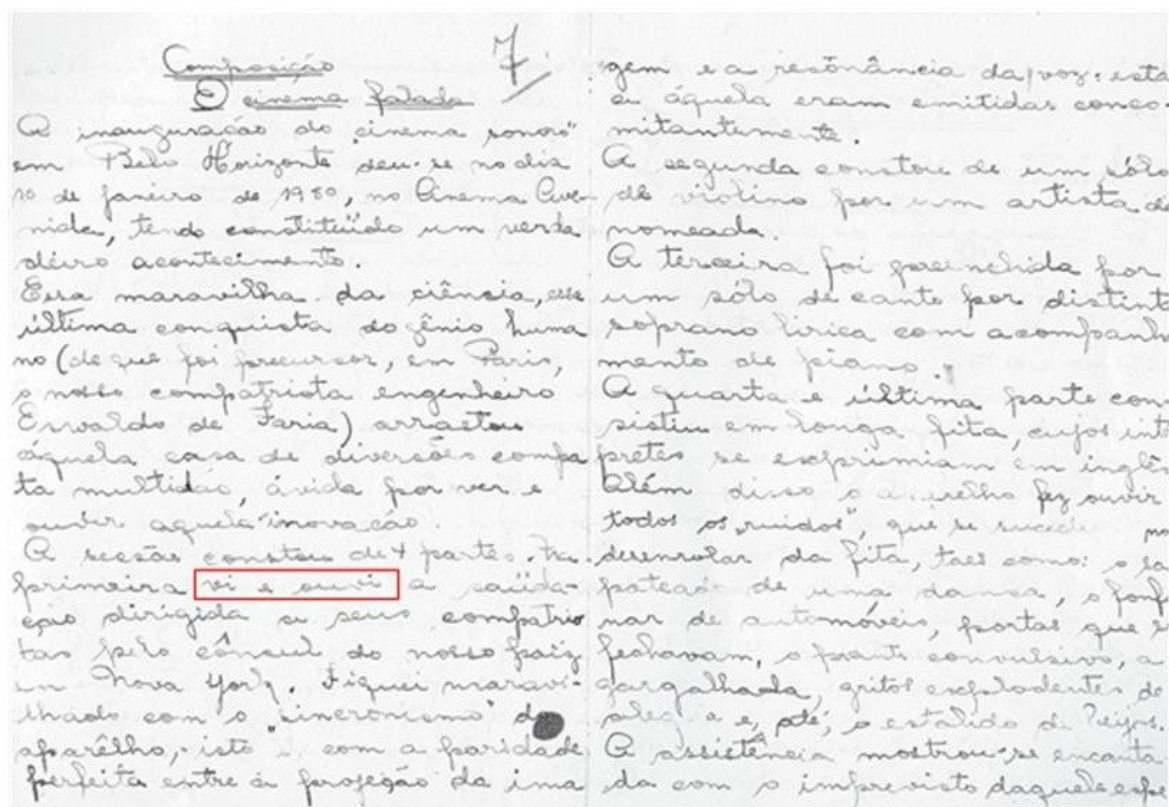 Composição
7
O cinema falado
A inauguração do cinema "sonoro"
em Belo Horizonte deu-se no dia
10 de janeiro de 1980, no Cinema Ave-
nida, tendo constituïdo um verda
deiro acontecimento.
Essa maravilha da ciência, essa
última conquista do gênio huma
no (de que foi precursor, em Paris,
o nosso compatriota engenheiro
de Faria) arrastou
àquela casa de diversões compa
ta multidão, ávida por ver e
ouvir aquela inovação.
A secsão constou de 4 partes. Na
primeira vi e ouvi a saüda-
ção dirigida a seus compatrio
tas pelo cônsul do nosso paiz
em Nova York. Fiquei maravi-
lhado com o "sincronismo" do
aparêlho, isto é com a paridade
perfeita entre a projeção da ima
gem e a resonância da voz. esta
e áquela eram emitidas conco-
mitantemente.
A segunda constou de um sólo
de violino por um artista de
nomeada.
A terceira foi preenchida por
um sólo de canto por distinta
soprano lírica com acompanha
mento de piano.
A quarta e última parte con
sistiu em longa fita, cujos inté
pretes se exprimiam em inglês
Além disso o aparelho fez ouvir
todos os "ruidos", que se no
desenrolar da fita, taes como: o sa
pateado de uma dansa, o fonfo
nar de automóveis, portas que se
fechavam, o pranto convulsivo, a
gargalhada, gritos explodentes de
alegria e, até, o estalido de beijos.
A assistência mostrou-se encanta
da com o imprevisto daquele espe